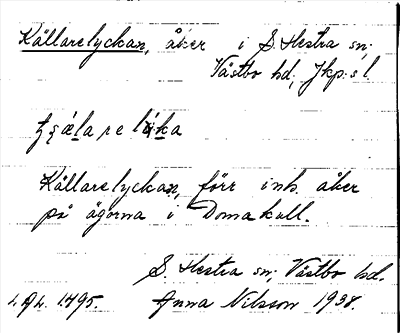 Källarelyckan, åker i S. Hestra sn;
Västbo hd; Jkp:s l
Källarelyckan, förr inh. åker
på ägorna i Domakull.
S. Hestra sn; Västbo hd.
1495. Anna Nilsson 1938.